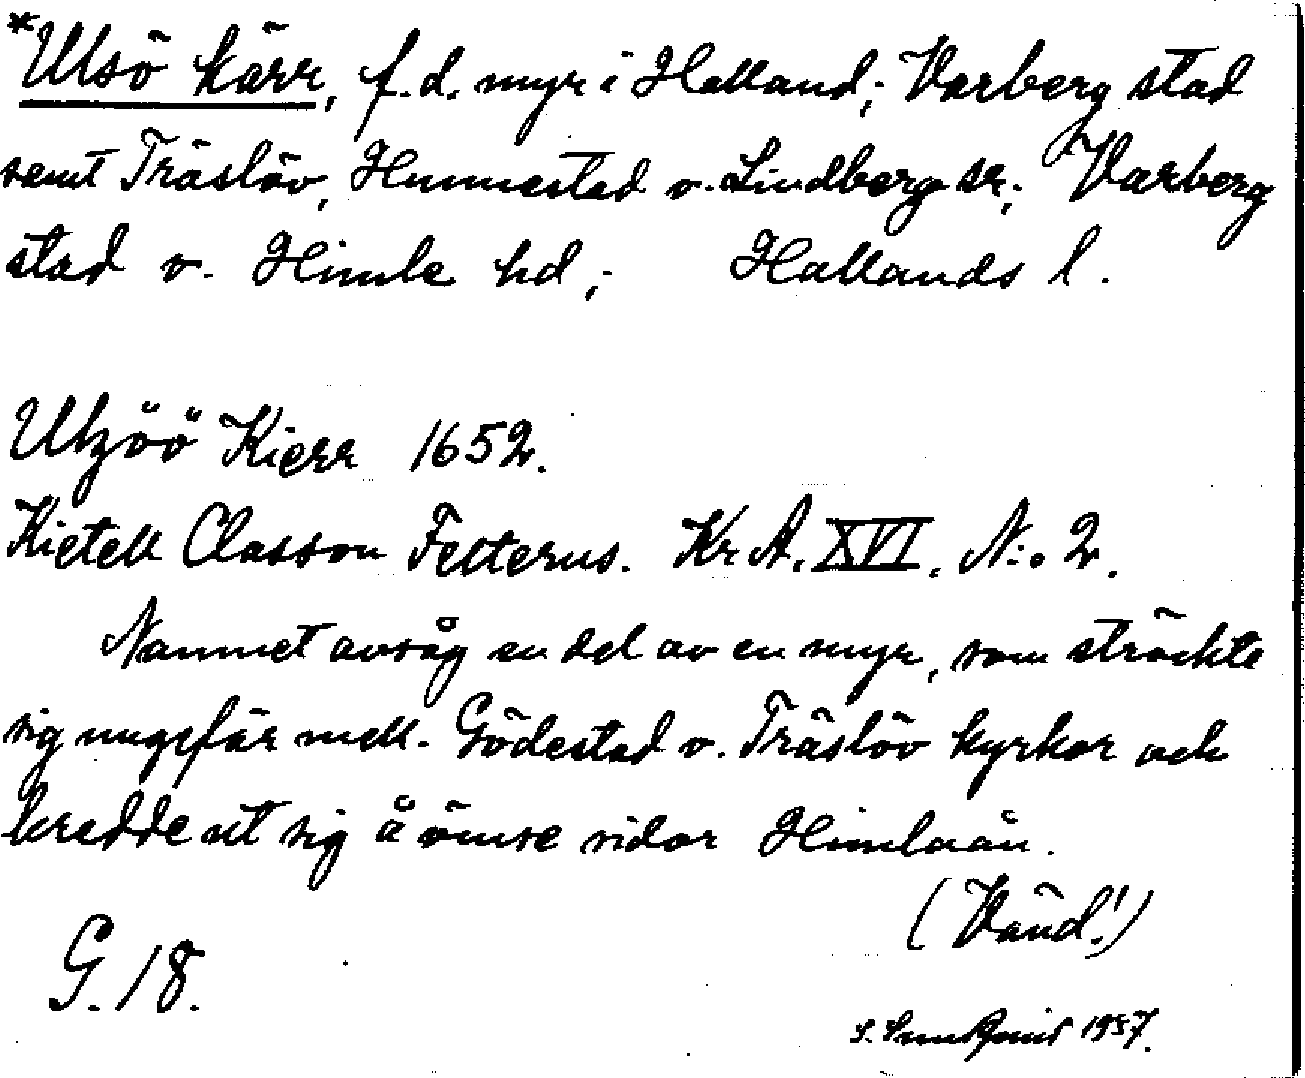 *Ulsö kärr, f.d. myr i Halland; Varberg stad
samt Träslöv, Hunnestad o. Lindberg sr; Varberg
stad o. Himle hd; Hallands l.
Ulzöö Kierr 1652.
Kietell Classon Felterus. Kr A. XVI. N:o 2.
Namnet avsåg en del av en myr, som sträckte
sig ungefär mell. Gödestad o. Träslöv kyrkor och
bredde ut sig å ömse sidor Himleån.
(Vänd!)
G. 18.
S. 1957.